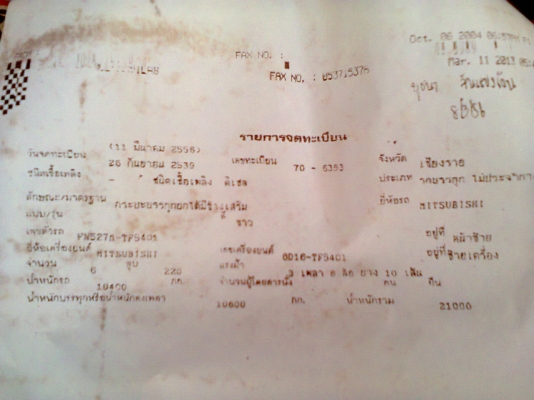 Oct. 06 2004
FAX NO. :
Mar. 11 2013
FAX NO. : 053715378
รายการจดทะเบียน
(11 มีนาคม 2556)
วันจดทะเบียน 26 กันยายน 2539 เลขทะเบียน 70 - 6393 จังหวัด เชียงราย
ชนิดเชื้อเพลิง - ชนิดเชื้อเพลิง ดีเซล ประเภท รถบรรทุก ไม่ประจำทาง
ลักษณะ/มาตรฐาน กระบะบรรทุกยกได้มีข้างเสริม ยี่ห้อรถ MITSUBISHI
แบบ/รุ่น สี ขาว
เลขตัวรถ FN527S-TF5401 อยู่ที่ หน้าซ้าย
ยี่ห้อเครื่องยนต์ MITSUBISHI เลขเครื่องยนต์ 6D16-TF5401 อยู่ที่ ซ้ายเครื่อง
จำนวน 6 สูบ 220 แรงม้า 3 เพลา 6 ล้อ ยาง 10 เส้น
น้ำหนักรถ 10400 กก. จำนวนผู้โดยสารนั่ง คน ยืน
น้ำหนักบรรทุกหรือน้ำหนักลงเพลา 10600 กก. น้ำหนักรวม 21000